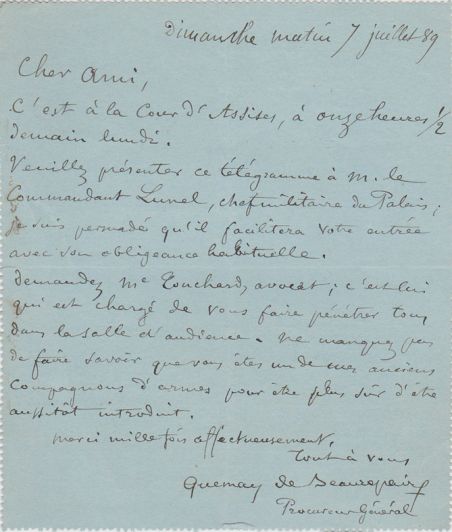 Dimanche matin 7 juillet 89
Cher Ami,
C'est à la Cour d'Assises, à onze heures 1/2
demain lundi.
Veuillez présenter ce télégramme à M. le
Commandant Lunel, chef militaire du Palais ;
je suis persuadé qu'il facilitera votre entrée
avec son obligeance habituelle.
Demandez Me Touchard, avocat ; c'est lui
qui est chargé de vous faire pénétrer tous
dans la salle d'audience. Ne manquez pas
de faire savoir que vous êtes un de mes anciens
Compagnons d'armes pour être plus sûr d'être
aussitôt introduit.
Merci mille fois affectueusement.
Tout à vous
Quesnay de Beaurepaire
Procureur Général